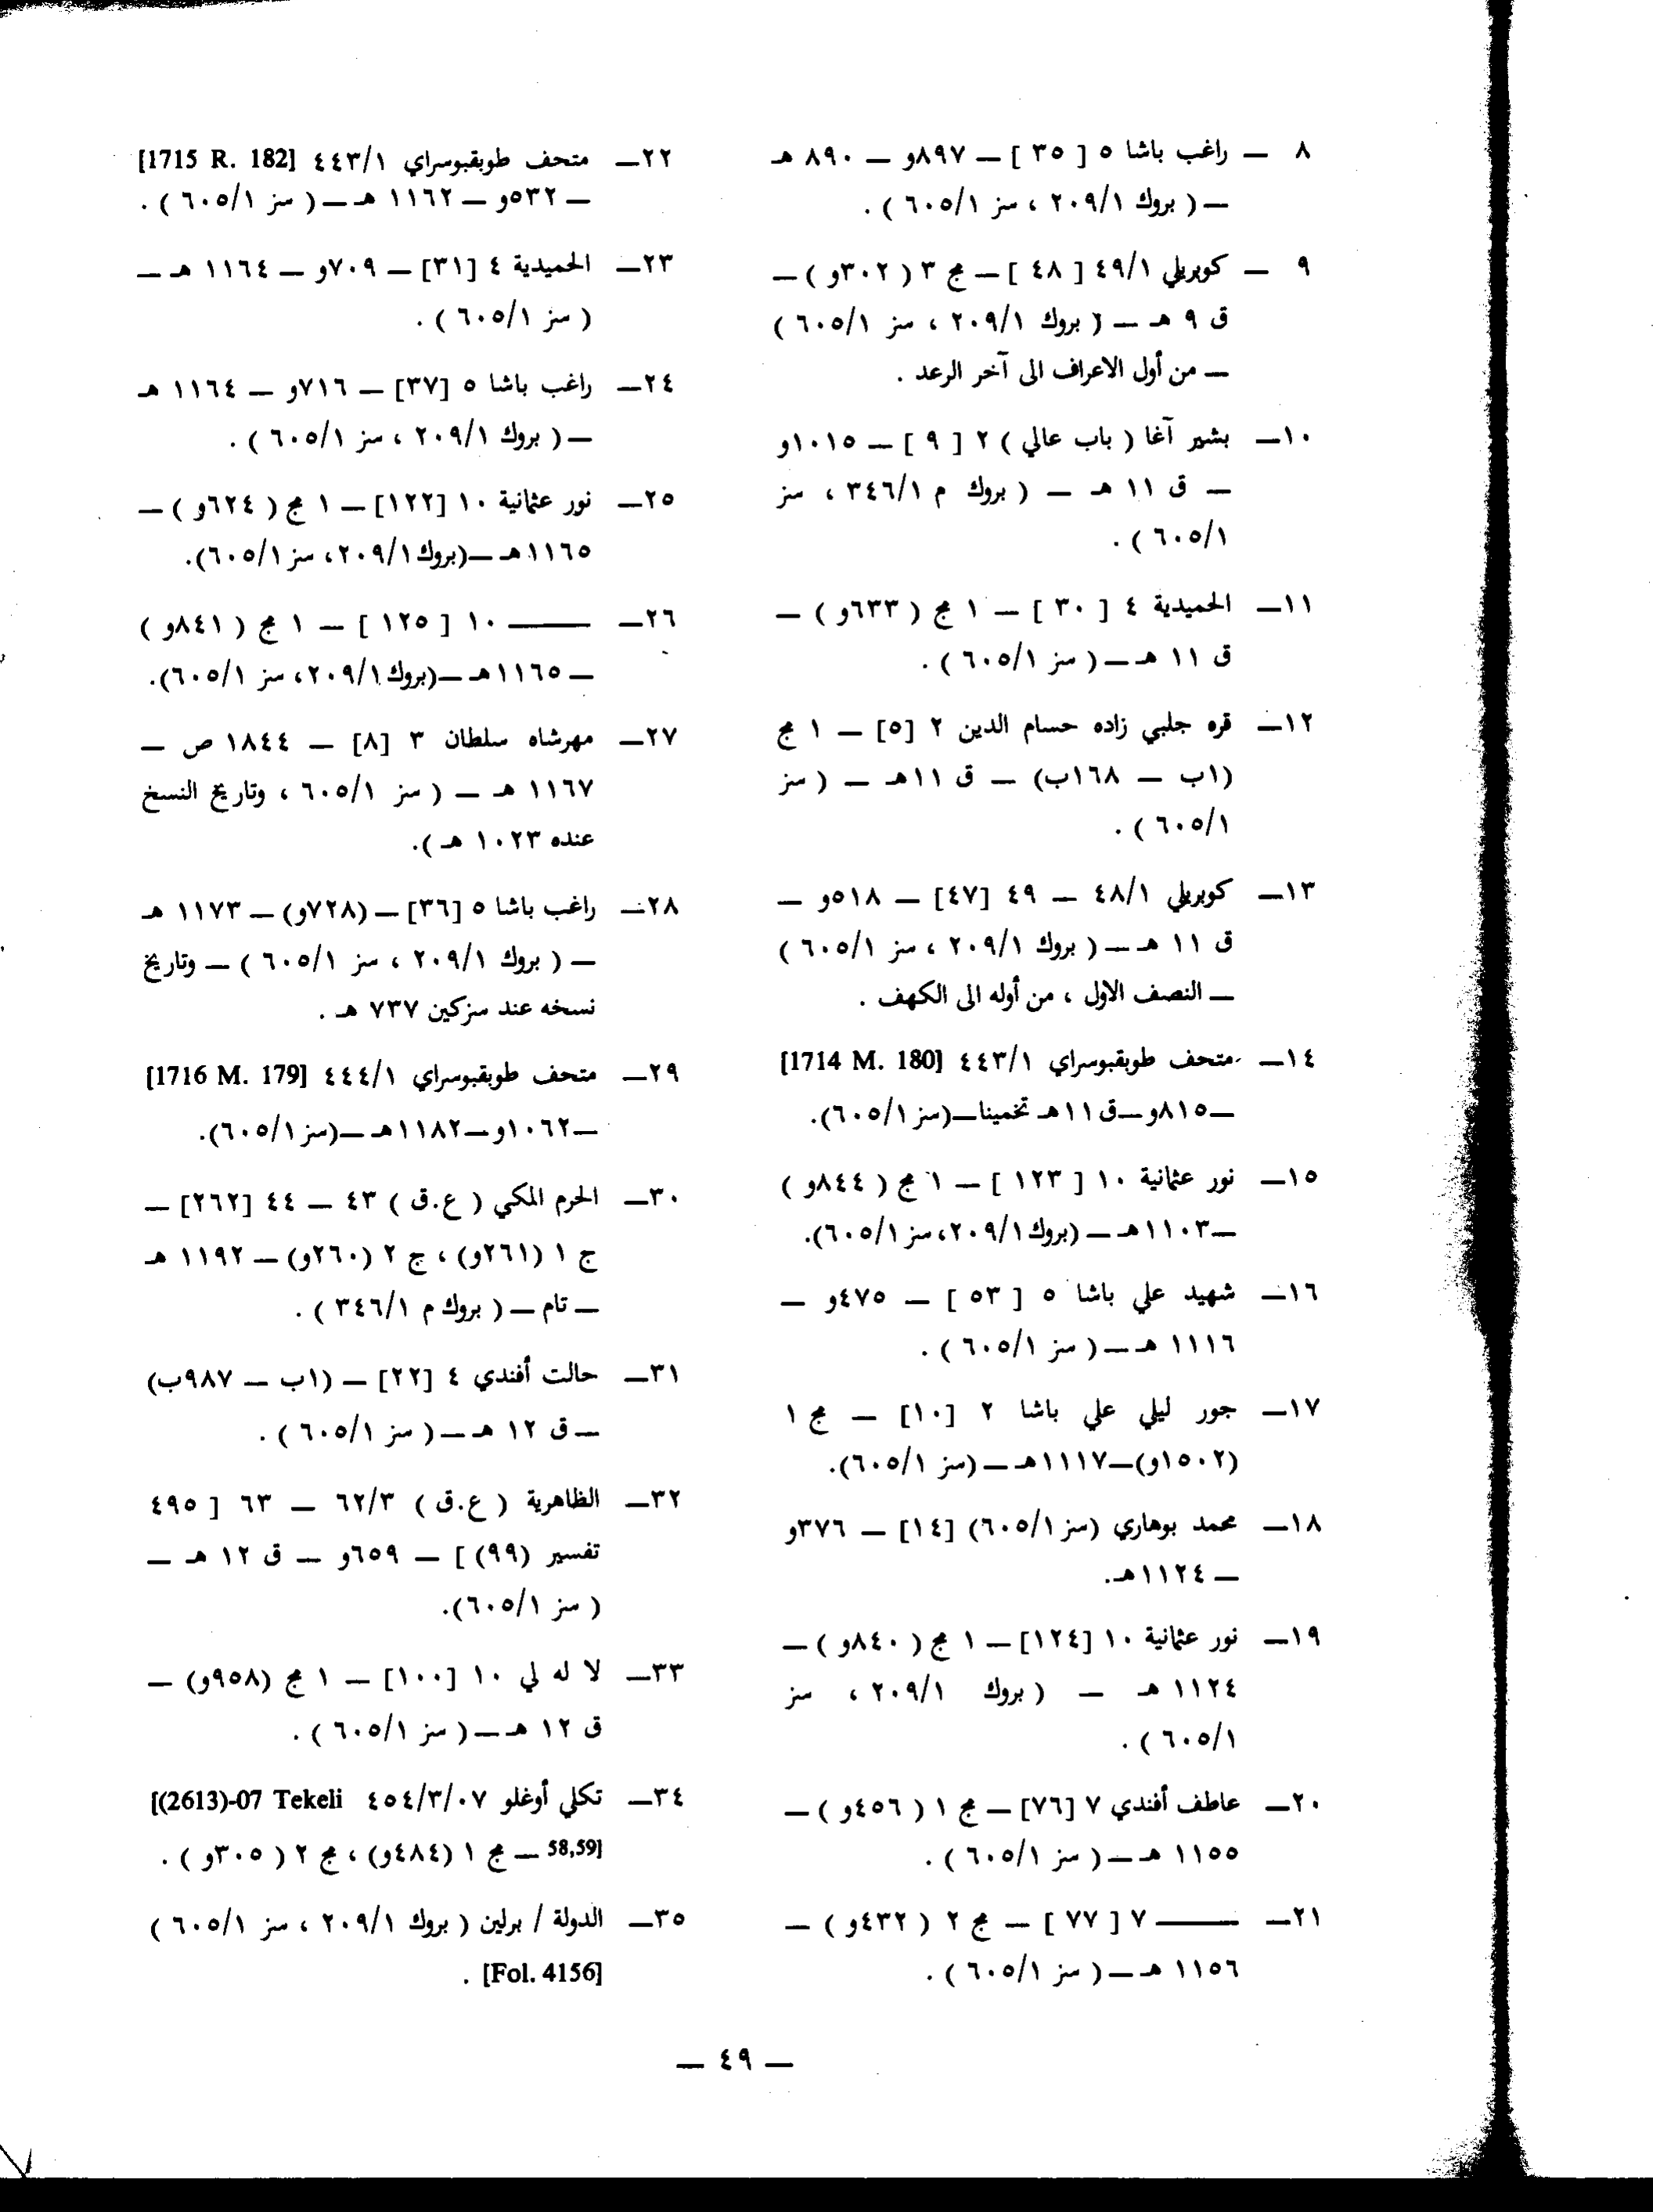 ٨ — راغب باشا ٥ [ ٣٥ ] — ٨٩٧و — ٨٩٠ هـ
— ( بروك ٢٠٩/١ ، سز ٦٠٥/١ ) .
٩ — كوبريلي ٤٩/١ [ ٤٨ ] — مج ٣ ( ٣٠٢و ) —
ق ٩ هـ — ( بروك ٢٠٩/١ ، سز ٦٠٥/١ )
— من أول الاعراف الى آخر الرعد .
١٠— بشير آغا ( باب عالي ) ٢ [ ٩ ] — ١٠١٥و
— ق ١١ هـ — ( بروك م ٣٤٦/١ ، سز
٦٠٥/١ ) .
١١— الحميدية ٤ [ ٣٠ ] — ١ مج ( ٦٣٣و ) —
ق ١١ هـ — ( سز ٦٠٥/١ ) .
١٢— قره جلبي زاده حسام الدين ٢ [٥] — ١ مج
(١ب — ١٦٨ب) — ق ١١هـ — ( سز
٦٠٥/١ ) .
١٣— كوبريلي ٤٨/١ — ٤٩ [٤٧] — ٥١٨و —
ق ١١ هـ — ( بروك ٢٠٩/١ ، سز ٦٠٥/١ )
— النصف الاول ، من أوله الى الكهف .
١٤— متحف طوبقبوسراي ٤٤٣/١ [1714 M. 180]
—٨١٥و—ق ١١هـ تخمينا—(سز ٦٠٥/١).
١٥— نور عثمانية ١٠ [ ١٢٣ ] — ١ مج ( ٨٤٤و )
—١١٠٣هـ — (بروك ٢٠٩/١، سز ٦٠٥/١).
١٦— شهيد علي باشا ٥ [ ٥٣ ] — ٤٧٥و —
١١١٦ هـ — ( سز ٦٠٥/١ ) .
١٧— جور ليلي علي باشا ٢ [١٠] — مج ١
(١٥٠٢و)—١١١٧هـ — (سز ٦٠٥/١).
١٨— محمد بوهاري (سز ٦٠٥/١) [١٤] — ٣٧٦و
— ١١٢٤هـ.
١٩— نور عثمانية ١٠ [١٢٤] — ١ مج ( ٨٤٠و ) —
١١٢٤ هـ — ( بروك ٢٠٩/١ ، سز
٦٠٥/١ ) .
٢٠— عاطف أفندي ٧ [٧٦] — مج ١ ( ٤٥٦و ) —
١١٥٥ هـ — ( سز ٦٠٥/١ ) .
٢١— ——— ٧ [ ٧٧ ] — مج ٢ ( ٤٣٢و ) —
١١٥٦ هـ — ( سز ٦٠٥/١ ) .
٢٢— متحف طوبقبوسراي ٤٤٣/١ [1715 R. 182]
— ٥٣٢و — ١١٦٢ هـ — ( سز ٦٠٥/١ ) .
٢٣— الحميدية ٤ [٣١] — ٧٠٩و — ١١٦٤ هـ —
( سز ٦٠٥/١ ) .
٢٤— راغب باشا ٥ [٣٧] — ٧١٦و — ١١٦٤ هـ
— ( بروك ٢٠٩/١ ، سز ٦٠٥/١ ) .
٢٥— نور عثمانية ١٠ [١٢٢] — ١ مج ( ٦٢٤و ) —
١١٦٥هـ —(بروك ٢٠٩/١، سز ٦٠٥/١).
٢٦— ——— ١٠ [ ١٢٥ ] — ١ مج ( ٨٤١و )
— ١١٦٥هـ —(بروك ٢٠٩/١، سز ٦٠٥/١).
٢٧— مهرشاه سلطان ٣ [٨] — ١٨٤٤ ص —
١١٦٧ هـ — ( سز ٦٠٥/١ ، وتاريخ النسخ
عنده ١٠٢٣ هـ ).
٢٨— راغب باشا ٥ [٣٦] — (٧٢٨و) — ١١٧٣ هـ
— ( بروك ٢٠٩/١ ، سز ٦٠٥/١ ) — وتاريخ
نسخه عند سزكين ٧٣٧ هـ .
٢٩— متحف طوبقبوسراي ٤٤٤/١ [1716 M. 179]
—١٠٦٢و—١١٨٢هـ —(سز ٦٠٥/١).
٣٠— الحرم المكي ( ع.ق ) ٤٣ — ٤٤ [٢٦٢] —
ج ١ (٢٦١و) ، ج ٢ (٢٦٠و) — ١١٩٢ هـ
— تام — ( بروك م ٣٤٦/١ ) .
٣١— حالت أفندي ٤ [٢٢] — (١ب — ٩٨٧ب)
— ق ١٢ هـ — ( سز ٦٠٥/١ ) .
٣٢— الظاهرية ( ع.ق ) ٦٢/٣ — ٦٣ [ ٤٩٥
تفسير (٩٩) ] — ٦٥٩و — ق ١٢ هـ —
( سز ٦٠٥/١).
٣٣— لا له لي ١٠ [١٠٠] — ١ مج (٩٥٨و) —
ق ١٢ هـ — ( سز ٦٠٥/١ ) .
٣٤— تكلي أوغلو ٤٥٤/٣/٠٧ [(2613)-07 Tekeli
58,59] — مج ١ (٤٨٤و) ، مج ٢ ( ٣٠٥و ) .
٣٥— الدولة / برلين ( بروك ٢٠٩/١ ، سز ٦٠٥/١ )
[Fol. 4156] .
— ٤٩ —